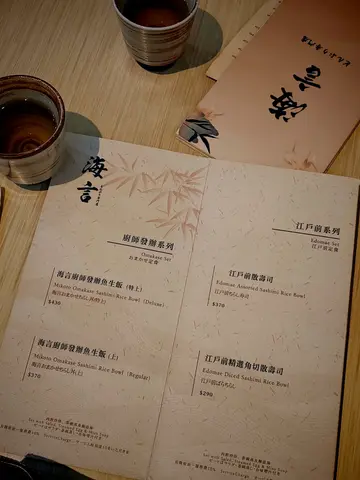 どんぶり専門店
海言
海言
廚師發辦系列
Omakase Set
おまかせ定食
海言廚師發辦魚生飯（特上）
Mikoto Omakase Sashimi Rice Bowl (Deluxe)
海言おまかせちらし丼(特上)
$430
海言廚師發辦魚生飯（上）
Mikoto Omakase Sashimi Rice Bowl (Regular)
海言おまかせちらし丼(上)
$370
江戶前系列
Edomae Set
江戸前定食
江戶前散壽司
Edomae Assorted Sashimi Rice Bowl
江戸前ちらし寿司
$370
江戶前精進角切散壽司
Edomae Diced Sashimi Rice Bowl
江戸前ばらちらし
$290